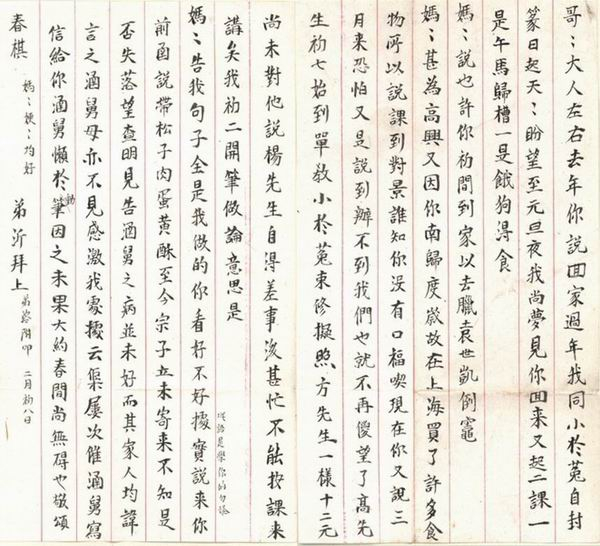 哥〻大人左右去年你說回家過年我同小於菟自封
篆日起天〻盼望至元旦夜我尚夢見你回來又起二課一
是午馬歸槽一是餓狗得食
媽〻說也許你初間到家以去臘袁世凱倒竈
媽〻甚為高興又因你南歸度歲故在上海買了許多食
物所以說課到對景誰知你沒有口福喫現在你又說三
月來恐怕又是說到辦不到我們也就不再傻望了高先
生初七始到單教小於菟束脩擬照方先生一樣十二元
尚未對他說楊先生自得差事後甚忙不能按課來
講矣我初二開筆做論意思是
媽〻告我句子全是我做的你看好不好據實說來你
從話是學你的句法
前函說帶松子肉蛋黃酥至今宗子立未寄來不知是
否失落望查明見告涵舅之病並未好而其家人均諱
言之涵舅母亦不見感激我家據云渠屢次催涵舅寫
信給你涵舅懶於動筆因之未果大約春間尚無碍也敬頌
春棋
媽〻 〻均好
弟沂拜上
二月初八日